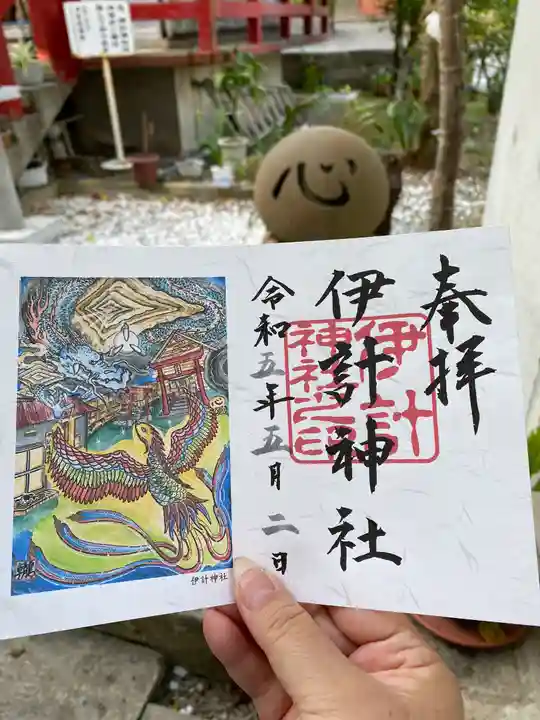 奉拝
伊計神社
伊計
神社之印
令和五年五月二日
伊計神社
心